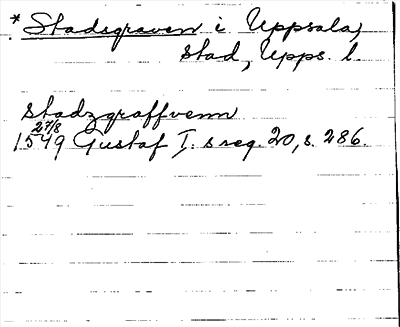 * Stadsgraven i Uppsala,
stad, Upps. l.
stadzgraffvenn
27/8
1549 Gustaf I. s reg. 20, s. 286.